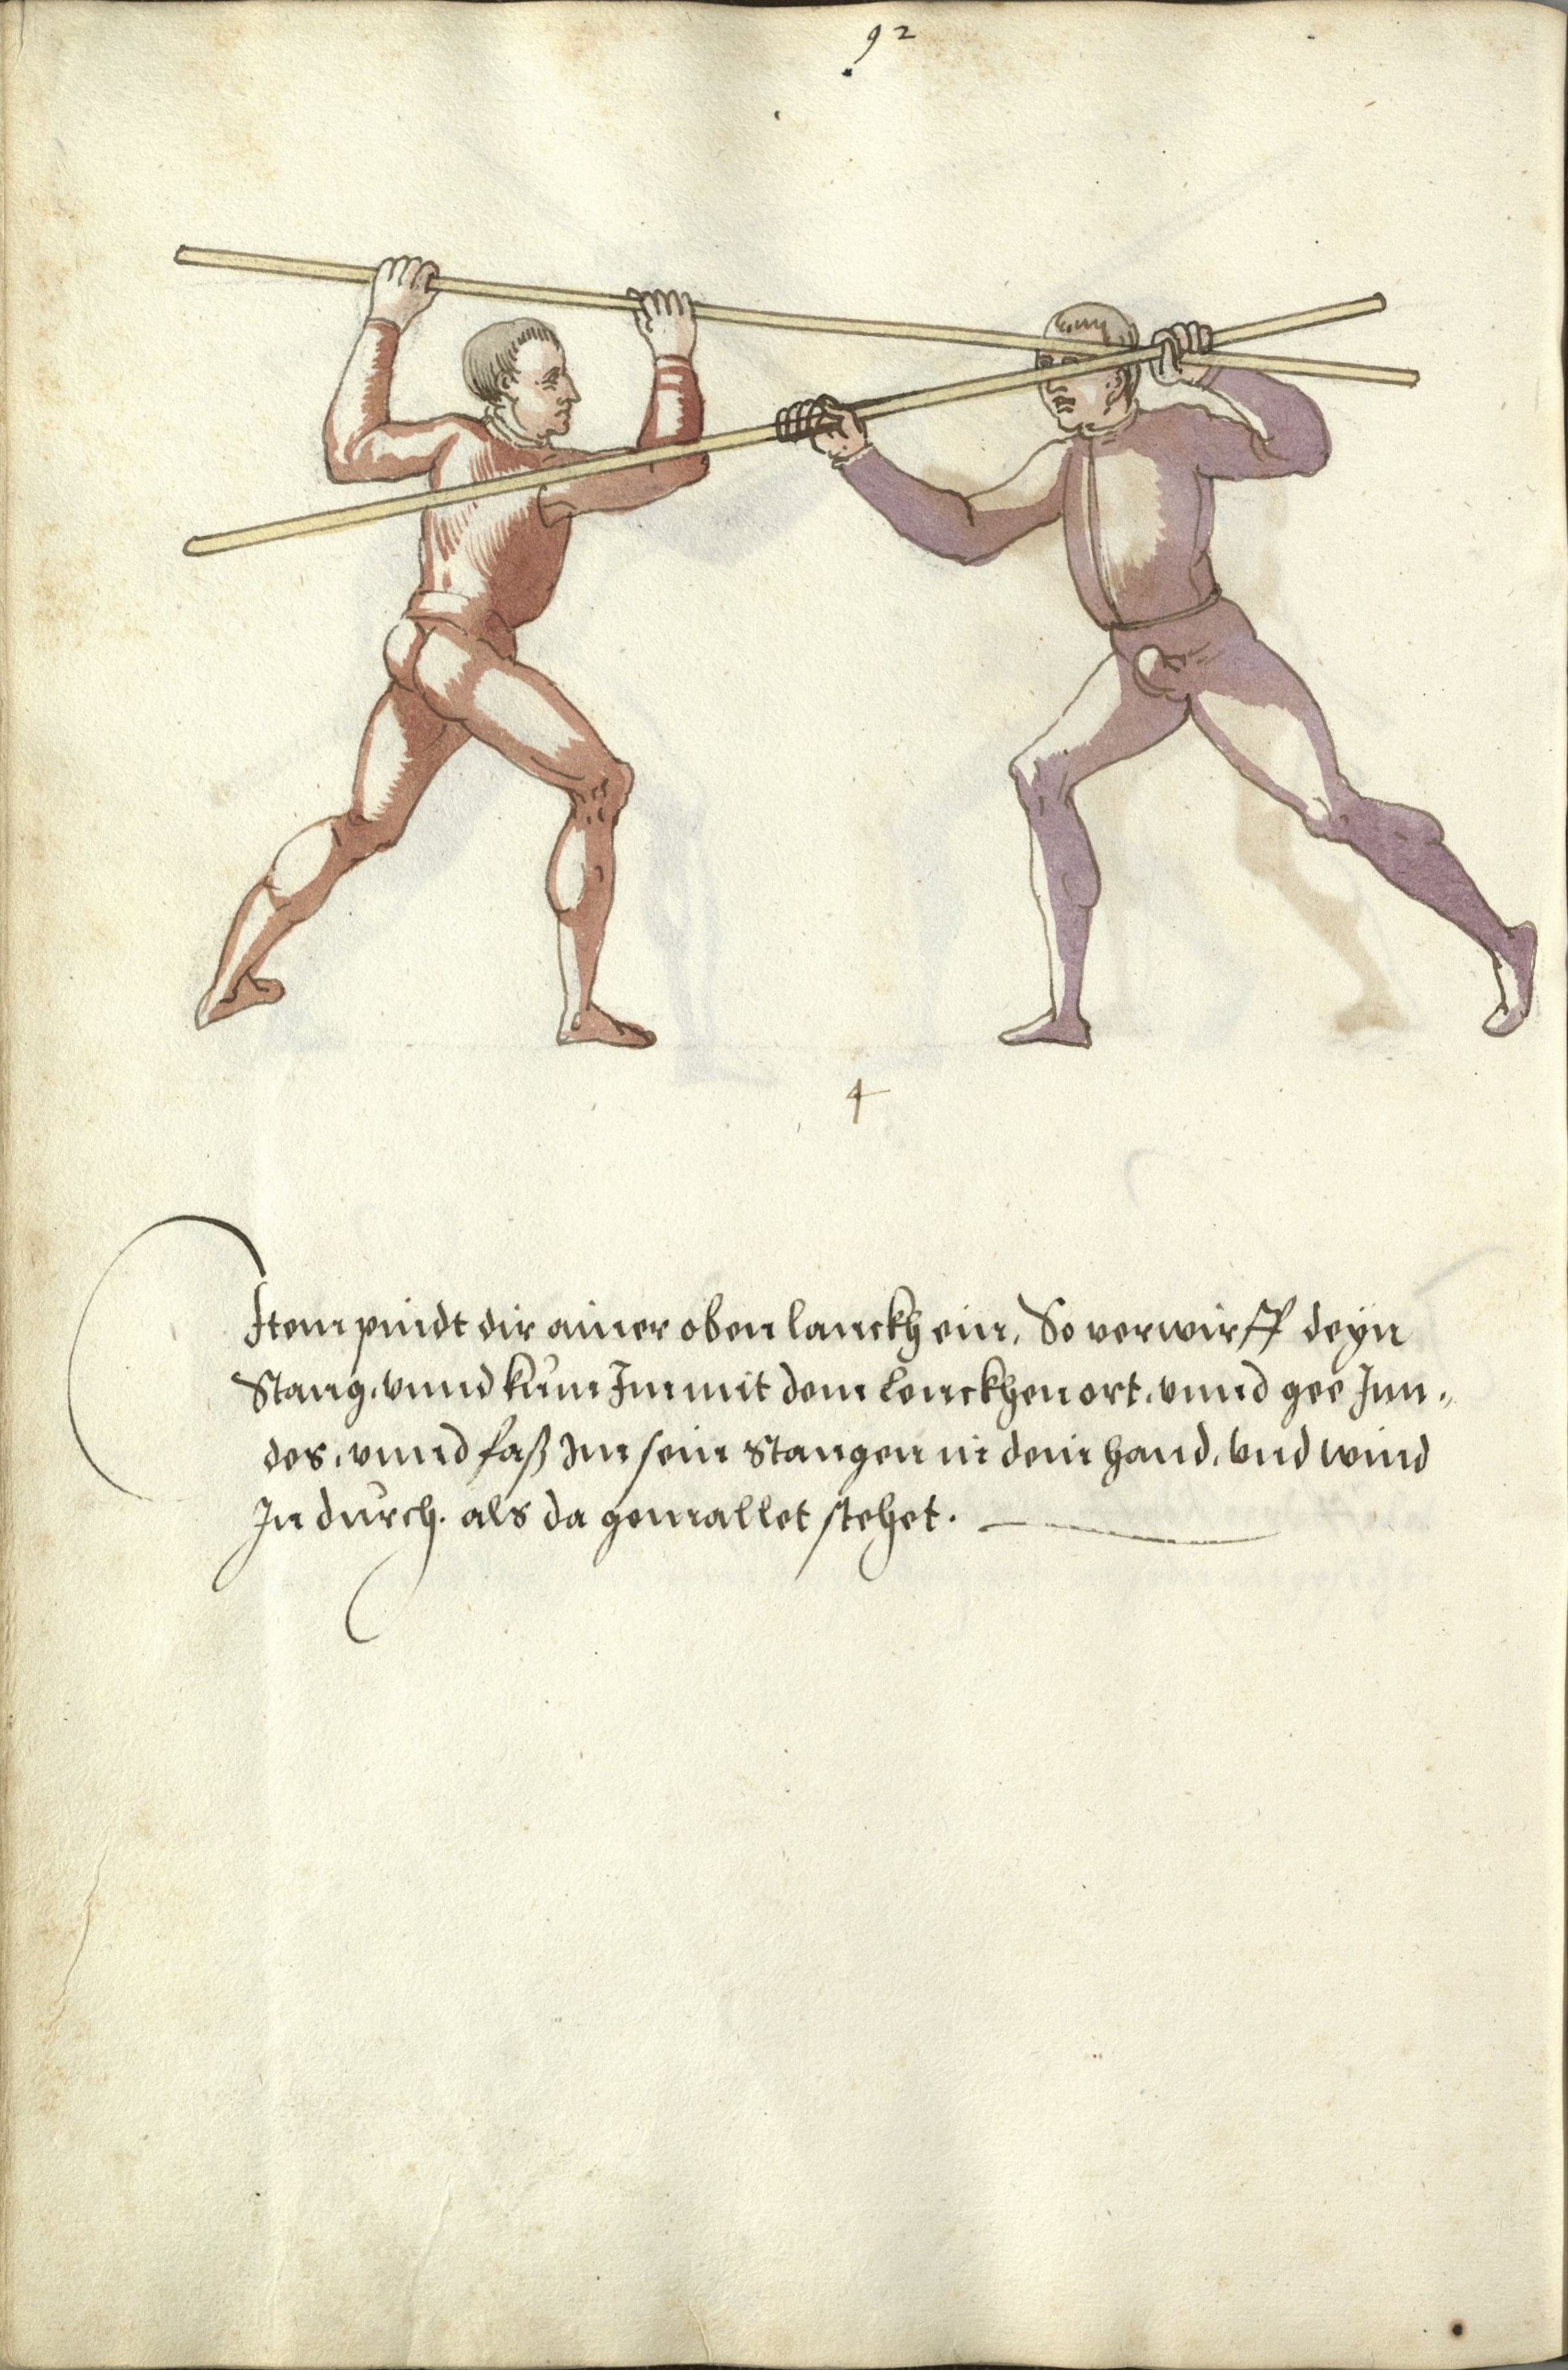 92
4
Item pindt dir ainer oben lanckh ein, So verwirff deyn
Stang, vnnd kum Im mit dem lenckhen ort, vnnd gee Jnn„
des, vnnd faß Im sein Stangen in dein hand, vnd wind
In durch. als da gemallet stehet.